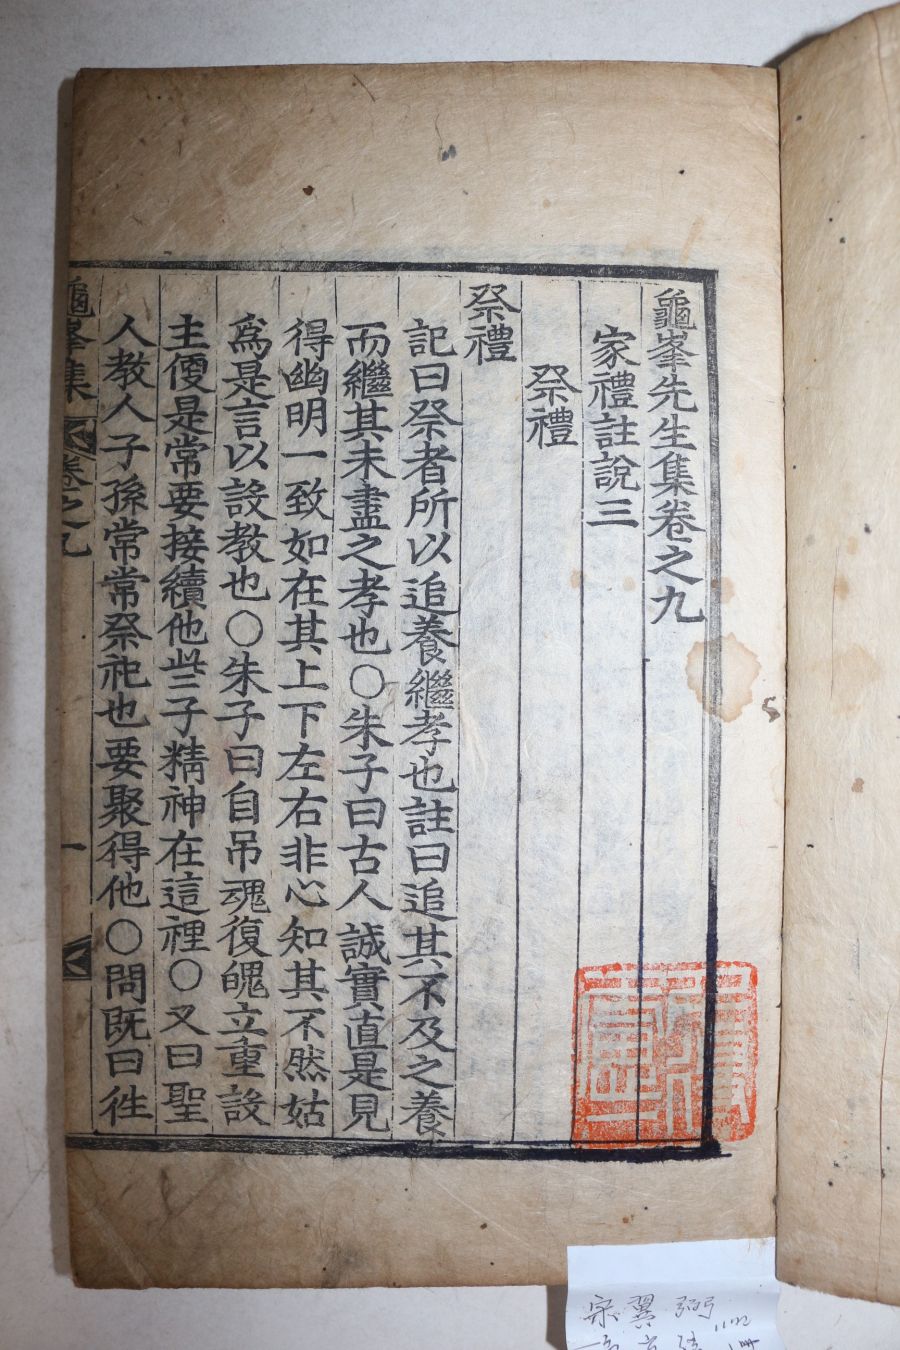 龜峯先生集卷之九
家禮註說三
祭禮
祭禮
記曰祭者所以追養繼孝也註曰追其不及之養
而繼其未盡之孝也○朱子曰古人誠實直是見
得幽明一致如在其上下左右非心知其不然姑
爲是言以設教也○朱子曰自吊魂復魄立重設
主便是常要接續他些子精神在這裡○又曰聖
人教人子孫常常祭祀也要聚得他○問既曰徃
龜峯集 卷之九 一
宋翼弼